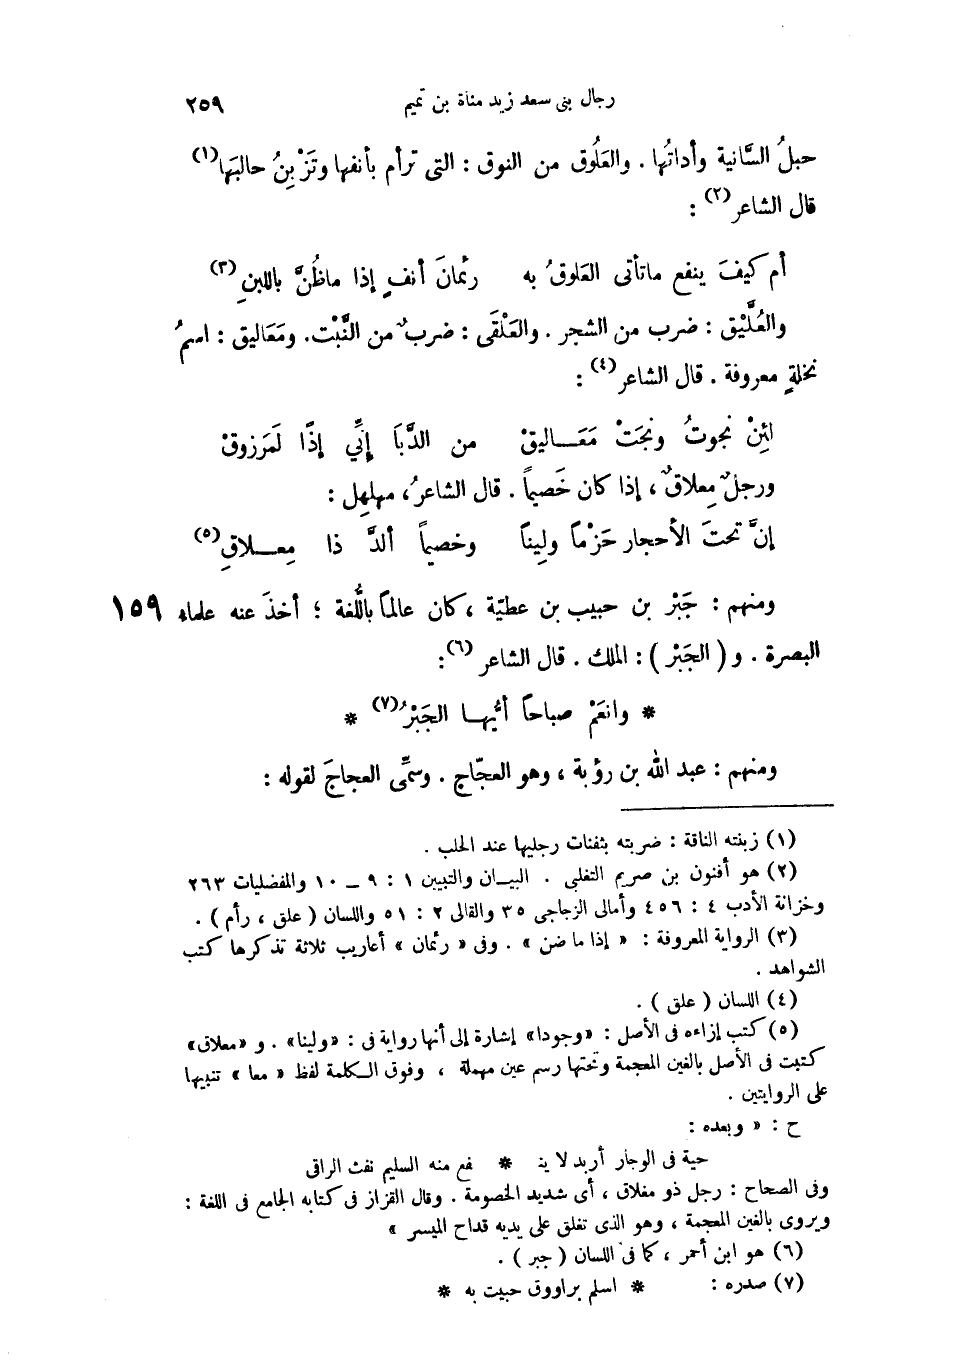 رجال بنى سعد زيد مناة بن تميم ٢٥٩
حبلُ السَّانية وأداتُها . والعَلُوق من النوق : التى ترأم بأنفها وتَزْبِنُ حالبَها(١)
قال الشاعر(٢) :
أم كيفَ ينفع ماتأتى العَلوقُ به رئمانَ أنفٍ إذا ماظُنَّ باللبنِ(٣)
والعُلَّيْق : ضرب من الشجر . والعَلْقَى : ضربٌ من النَّبْت. ومَعَاليق : اسمُ
نخلةٍ معروفة . قال الشاعر(٤) :
لئِنْ نجوتُ ونجَتْ مَعَـاليقْ من الدَّبَا إنِّي إذًا لَمَرزوقْ
ورجلٌ مِعلاقٌ ، إذا كان خَصيماً . قال الشاعرُ، مهلهِل :
إنَّ تحتَ الأحجار حَزْمًا ولِينًا وخصيماً ألدَّ ذا مِعـلاقِ(٥)
ومنهم : جَبْر بن حبيب بن عطيّة ، كان عالمًا باللُّغة ؛ أخذَ عنه علماء ١٥٩
البصرة . و ( الجَبْر ) : الملك . قال الشاعر (٦) :
* وانعَمْ صباحاً أيُّهـا الجَبْرُ(٧) *
ومنهم : عبد الله بن رؤبة ، وهو العجّاج . وسمِّى العجاجَ لقوله :
(١) زبنته الناقة : ضربته بثفنات رجليها عند الحلب .
(٢) هو أفنون بن صريم التغلبى . البيـان والتبيين ١ : ٩ ــ ١٠ والمفضليات ٢٦٣
وخزانة الأدب ٤ : ٤٥٦ وأمالى الزجاجى ٣٥ والقالى ٢ : ٥١ واللسان ( علق ، رأم ) .
(٣) الرواية المعروفة : « إذا ما ضن » . وفى « رئمان » أعاريب ثلاثة تذكرها كتب
الشواهد .
(٤) اللسان ( علق ) .
(٥) كتب إزاءه فى الأصل : «وجودا» إشارة إلى أنها رواية فى : «ولينا» . و «معلاق»
كتبت فى الأصل بالغين المعجمة وتحتها رسم عين مهملة ، وفوق الـكلمة لفظ « معا » تنبيها
على الروايتين .
ح : « وبعده :
حية فى الوجار أربد لا ينـ * ـفع منه السليم نفث الراقى
وفى الصحاح : رجل ذو مغلاق ، أى شديد الخصومة . وقال القزاز فى كتابه الجامع فى اللغة :
ويروى بالغين المعجمة ، وهو الذى تغلق على يديه قداح الميسر »
(٦) هو ابن أحمر ، كما فى اللسان ( جبر ) .
(٧) صدره : * اسلم براووق حبيت به *